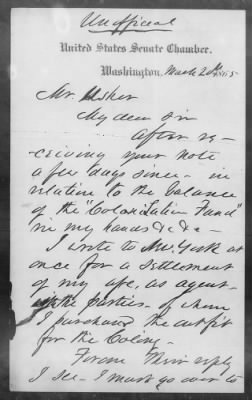 Unofficial
United States Senate Chamber.
Washington, March 2d 1865
Mr. Usher
My dear sir
after re-
ceiving your note
a few days since - in
relation to the balance
of the "Colonization Fund"
in my hands &c &c -
I wrote to New York at
once for a settlement
of my a/c, as agent
the parties - of whom
I purchased the outfit
for the Colony -
From their reply
I see - I must go over to